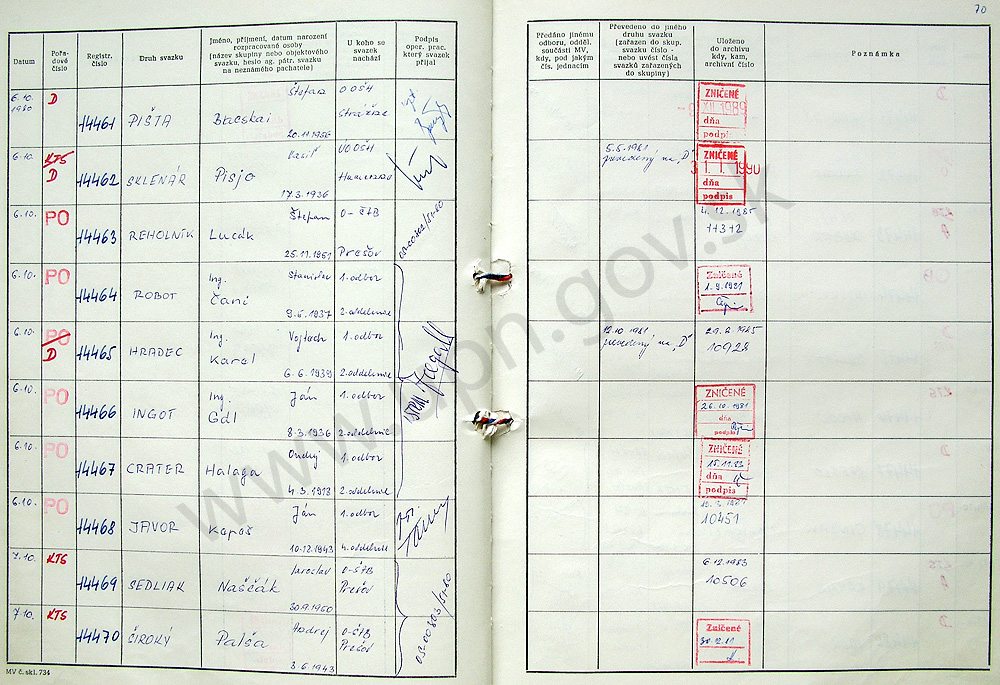 70
Datum
Pořa-
dové
číslo
Registr.
číslo
Druh svazku
Jméno, příjmení, datum narození
rozpracované osoby
(název skupiny nebo objektového
svazku, heslo ag. pátr. svazku
na neznámého pachatele)
U koho se
svazek
nachází
Podpis
oper. prac.
který svazek
přijal
Předáno jinému
odboru, odděl.
součásti MV,
kdy, pod jakým
čís. jednacím
Převedeno do jiného
druhu svazku
(zařazen do skup.
svazku číslo -
nebo uvést čísla
svazků zařazených
do skupiny)
Uloženo
do archivu
kdy, kam,
archivní číslo
Poznámka
6.10.
1980
D
14461
PIŠTA
Štefan
Bacskai
20.11.1956
OOŠH
ZNIČENÉ
XII 1989
dňa
podpi
6.10.
KTS
D
14462
SKLENÁR
Pisjo
17.3.1936
5.5.1981
prevedený na „D"
ZNIČENÉ
31. 1. 1990
dňa
podpis
6.10.
PO
14463
REHOLNÍK
Štefan
Lucák
25.11.1951
O-ŠTB
Prešov
4.12.1985
1+3+2
6.10.
PO
14464
ROBOT
Ing.
Stanislav
Čani
9.6.1937
1.odbor
2.oddelenie
Zničené
1.9.1981
6.10.
PO
D
14465
HRADEC
Ing.
Vojtech
Karel
6.6.1939
1.odbor
2.oddelenie
12.10.1981
prevedený na „D"
10928
6.10.
PO
14466
INGOT
Ing.
Ján
Gdl
8.3.1936
1.odbor
2.oddelenie
ZNIČENÉ
26.10.1981
dňa
podpis
6.10.
PO
14467
CRATER
Ondrej
Halaga
4.3.1918
1.odbor
2.oddelenie
ZNIČENÉ
15.11.83
dňa
podpis
6.10.
PO
14468
JAVOR
Ján
Kapaš
10.12.1943
1.odbor
4.oddelenie
10451
7.10.
KTS
14469
SEDLIAK
Jaroslav
Naščák
30.9.1950
O-ŠTB
Prešov
6.12.1983
10506
7.10.
KTS
14470
ŠIROKÝ
Andrej
Palša
3.6.1943
O-ŠTB
Prešov
Zničené
30.12.81
MV č. skl. 734
www.upn.gov.sk